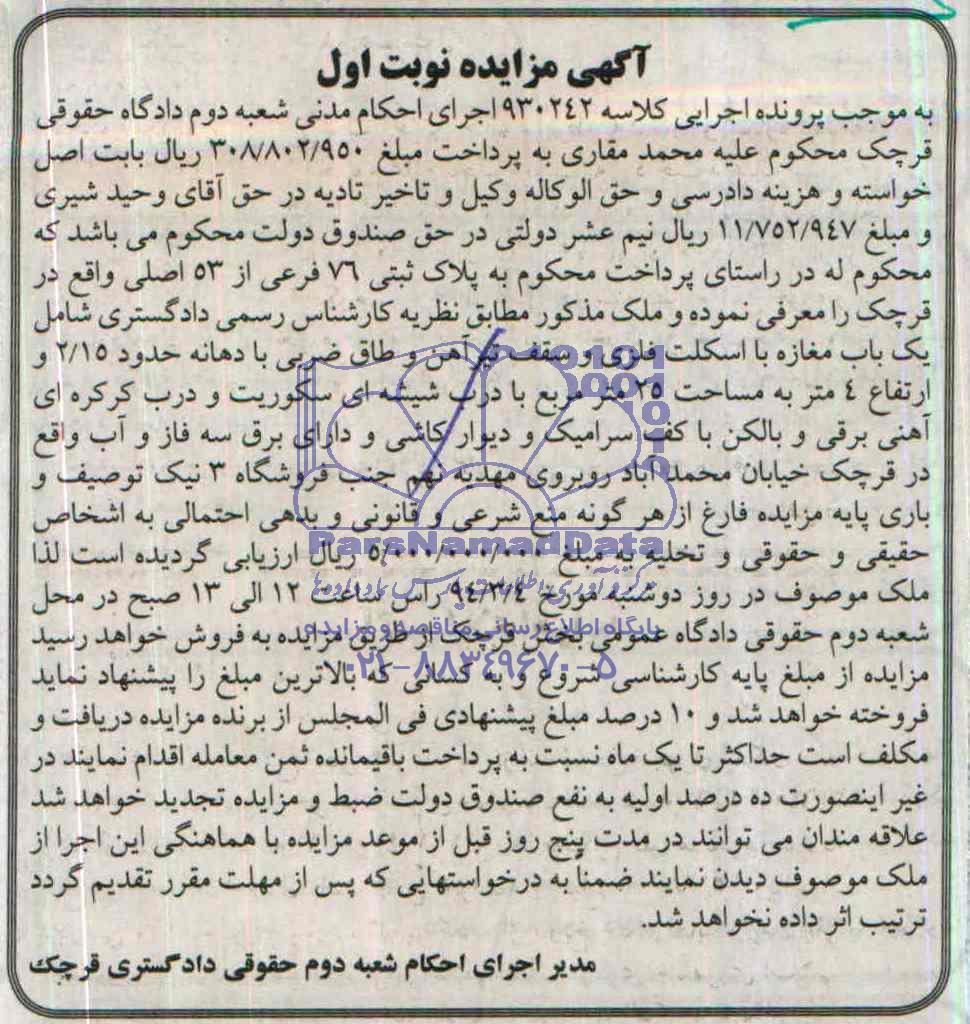 آگهی مزایده نوبت اول
به موجب پرونده اجرایی کلاسه ۹۳۰۲۴۲ اجرای احکام مدنی شعبه دوم دادگاه حقوقی
قرچک محکوم علیه محمد مقاری به پرداخت مبلغ ۳۰۸/۸۰۲/۹۵۰ ریال بابت اصل
خواسته و هزینه دادرسی و حق الوکاله وکیل و تاخیر تادیه در حق آقای وحید شیری
و مبلغ ۱۱/۷۵۲/۹۴۷ ریال نیم عشر دولتی در حق صندوق دولت محکوم می باشد که
محکوم له در راستای پرداخت محکوم به پلاک ثبتی ۷۶ فرعی از ۵۳ اصلی واقع در
قرچک را معرفی نموده و ملک مذکور مطابق نظریه کارشناس رسمی دادگستری شامل
یک باب مغازه با اسکلت فلزی و سقف تیرآهن و طاق ضربی با دهانه حدود ۲/۱۵ و
ارتفاع ۴ متر به مساحت ۲۵ متر مربع با درب شیشه ای سکوریت و درب کرکره ای
آهنی برقی و بالکن با کف سرامیک و دیوار کاشی و دارای برق سه فاز و آب واقع
در قرچک خیابان محمد آباد روبروی مهدیه نهم جنب فروشگاه ۳ نیک توصیف و
باری پایه مزایده فارغ از هر گونه منع شرعی و قانونی و بدهی احتمالی به اشخاص
حقیقی و حقوقی و تخلیه به مبلغ ۵/۰۰۰/۰۰۰/۰۰۰ ریال ارزیابی گردیده است لذا
ملک موصوف در روز دوشنبه مورخ ۹۴/۳/۴ راس ساعت ۱۲ الی ۱۳ صبح در محل
شعبه دوم حقوقی دادگاه عمومی بخش قرچک از طریق مزایده به فروش خواهد رسید
مزایده از مبلغ پایه کارشناسی شروع و به کسانی که بالاترین مبلغ را پیشنهاد نماید
فروخته خواهد شد و ۱۰ درصد مبلغ پیشنهادی فی المجلس از برنده مزایده دریافت و
مکلف است حداکثر تا یک ماه نسبت به پرداخت باقیمانده ثمن معامله اقدام نمایند در
غیر اینصورت ده درصد اولیه به نفع صندوق دولت ضبط و مزایده تجدید خواهد شد
علاقه مندان می توانند در مدت پنج روز قبل از موعد مزایده با هماهنگی این اجرا از
ملک موصوف دیدن نمایند ضمنا به درخواستهایی که پس از مهلت مقرر تقدیم گردد
ترتیب اثر داده نخواهد شد.
مدیر اجرای احکام شعبه دوم حقوقی دادگستری قرچک
ParsNamadData
پایگاه اطلاع رسانی مناقصه و مزایده
۰۲۱-۸۸۳۴۹۶۷۰-۵